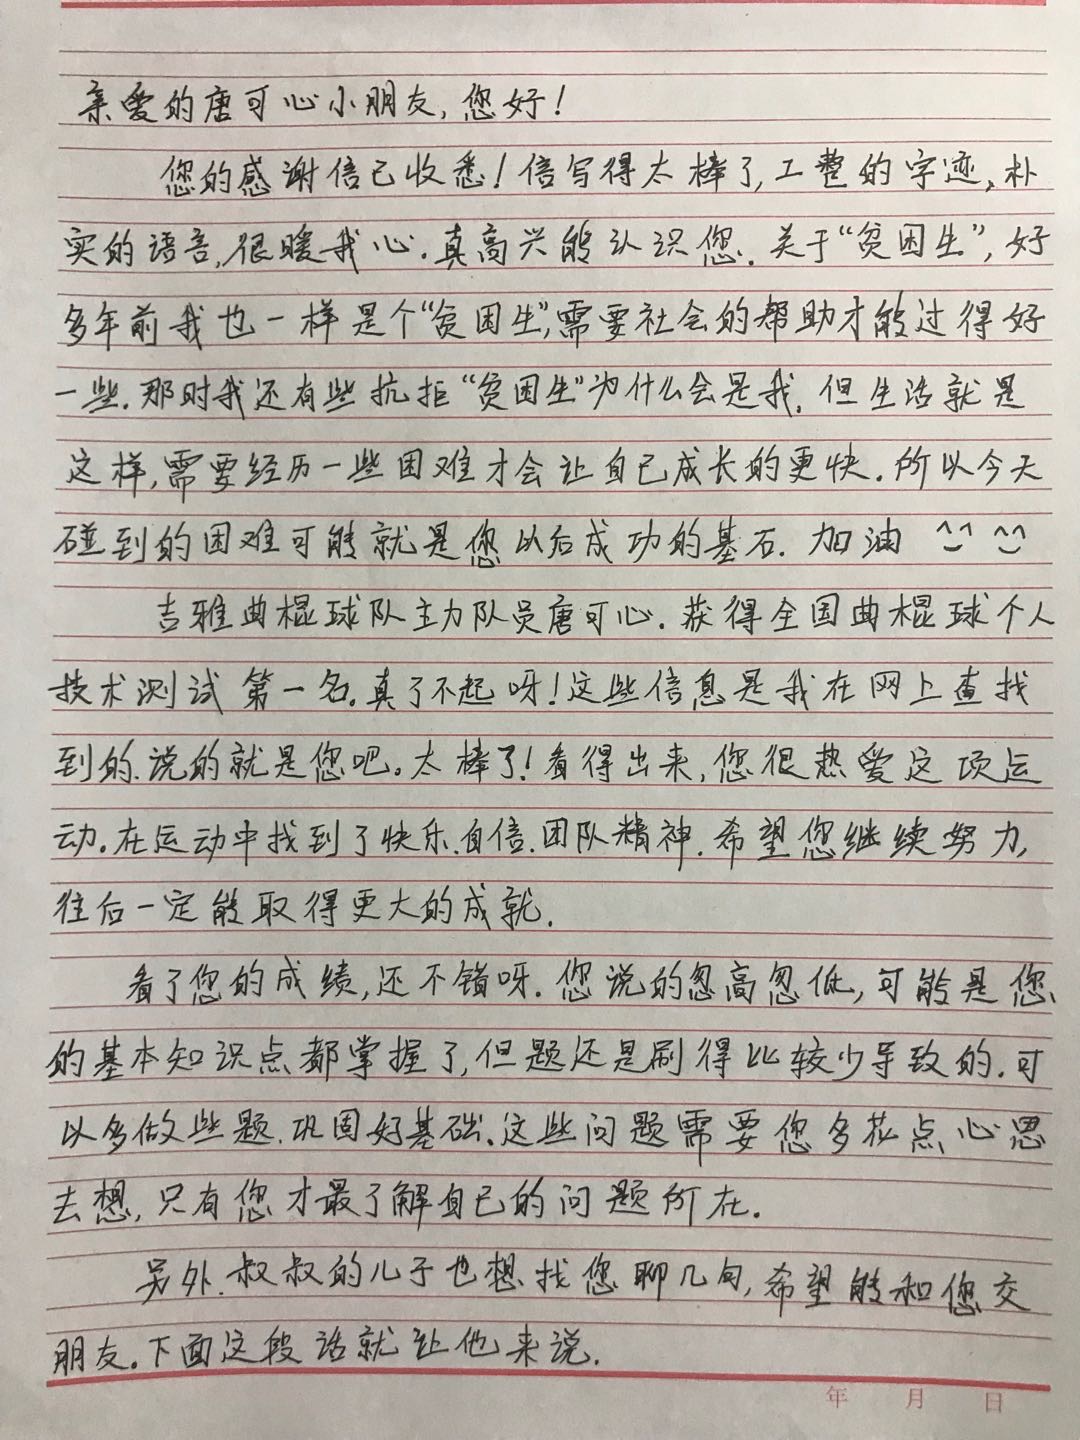 亲爱的唐可心小朋友,您好!
您的感谢信已收悉!信写得太棒了,工整的字迹、朴
实的语言,很暖我心.真高兴能认识您.关于“贫困生”,好
多年前我也一样是个“贫困生”,需要社会的帮助才能过得好
一些.那时我还有些抗拒“贫困生”为什么会是我.但生活就是
这样,需要经历一些困难才会让自己成长的更快.所以今天
碰到的困难可能就是您以后成功的基石.加油 ^‿^ ^‿^
吉雅曲棍球队主力队员唐可心.获得全国曲棍球个人
技术测试第一名。真了不起呀!这些信息是我在网上查找
到的.说的就是您吧。太棒了!看得出来,您很热爱这项运
动。在运动中找到了快乐.自信.团队精神.希望您继续努力,
往后一定能取得更大的成就.
看了您的成绩,还不错呀.您说的忽高忽低,可能是您
的基本知识点都掌握了,但题还是刷得比较少导致的.可
以多做些题.巩固好基础.这些问题需要您多花点心思
去想,只有您才最了解自己的问题所在.
另外.叔叔的儿子也想找您聊几句,希望能和您交
朋友.下面这段话就让他来说.
年 月 日